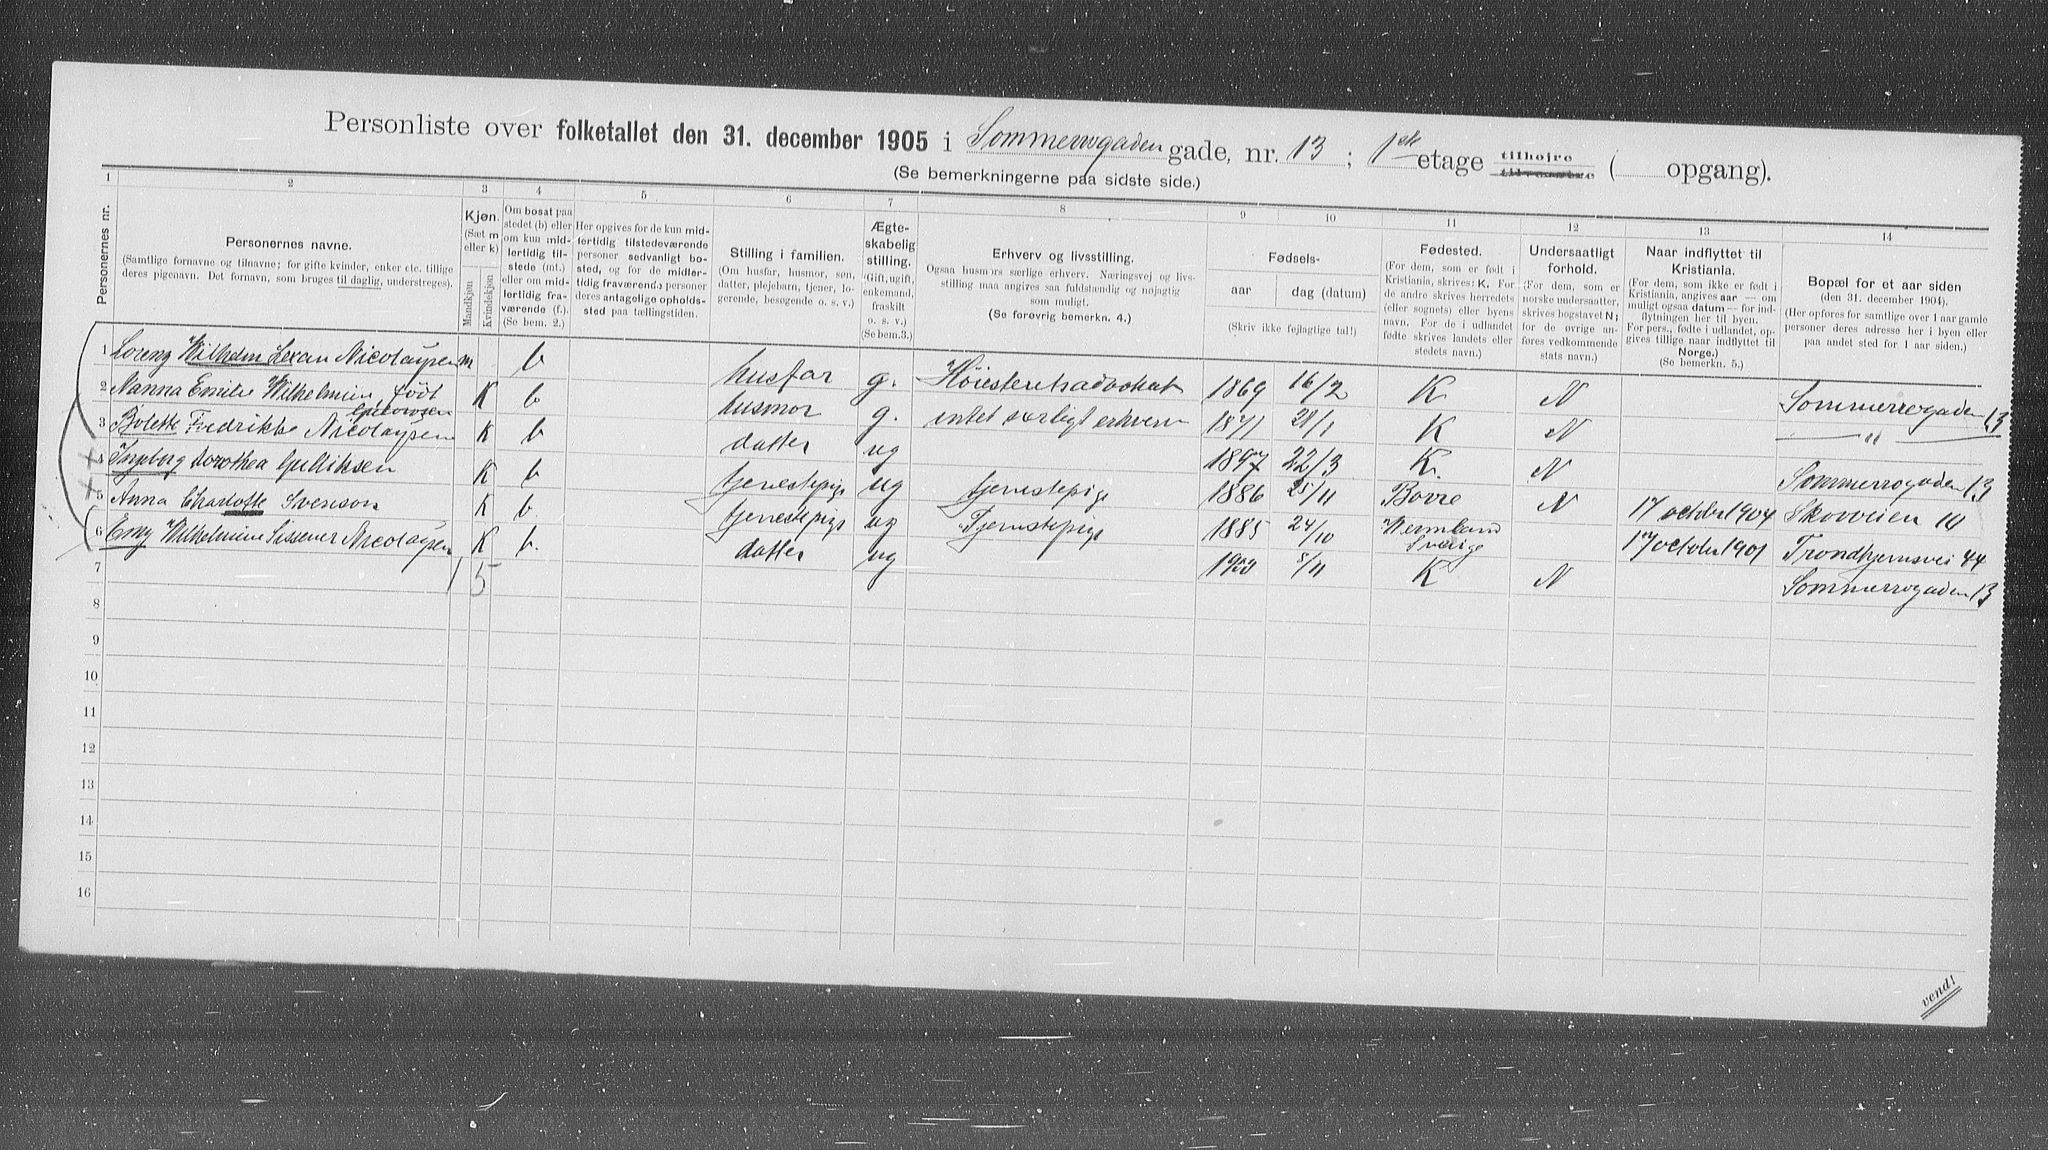 Personliste over folketallet den 31. december 1905 i Sommerrogaden gade, nr. 13 ; 1ste etage tilhøjre tilvenstre ( opgang).
(Se bemerkningerne paa sidste side.)
1 2 3 4 5 6 7 8 9 10 11 12 13 14
Personernes nr.
Personernes navne.
(Samtlige fornavne og tilnavne; for gifte kvinder, enker etc. tillige
deres pigenavn. Det fornavn, som bruges til daglig, understreges).
Kjøn.
(Sæt m
eller k)
Mandkjøn
Kvindekjøn
Om bosat paa
stedet (b) eller
om kun mid-
lertidig til-
stede (mt.)
eller om mid-
lertidig fra-
værende (f.).
(Se bem. 2.)
Her opgives for de kun mid-
lertidig tilstedeværende
personer sedvanligt bo-
sted, og for de midler-
tidig fraværende personer
deres antagelige opholds-
sted paa tællingstiden.
Stilling i familien.
(Om husfar, husmor, søn,
datter, plejebarn, tjener, lo-
gerende, besøgende o. s. v.)
Ægte-
skabelig
stilling.
(Gift, ugift,
enkemand,
fraskilt
o. s. v.)
(Se bem.3.)
Erhverv og livsstilling.
Ogsaa husmors særlige erhverv. Næringsvej og livs-
stilling maa angives saa fuldstændig og nøjagtig
som muligt.
(Se forøvrig bemerkn. 4.)
Fødsels-
aar dag (datum)
(Skriv ikke fejlagtige tal!)
Fødested.
(For dem, som er født i
Kristiania, skrives: K. For
de andre skrives herredets
(eller sognets) eller byens
navn. For de i udlandet
fødte skrives landets eller
stedets navn.)
Undersaatligt
forhold.
(For dem, som er
norske undersaatter,
skrives bogstavet N;
for de øvrige an-
føres vedkommende
stats navn.)
Naar indflyttet til
Kristiania.
(For dem, som ikke er født i
Kristiania, angives aar — om
muligt ogsaa datum — for ind-
flytningen her til byen.
For pers., fødte i udlandet, op-
gives tillige naar indflyttet til
Norge.)
(Se bemerkn. 5.)
Bopæl for et aar siden
(den 31. december 1904).
(Her opføres for samtlige over 1 aar gamle
personer deres adresse her i byen eller
paa andet sted for 1 aar siden.)
1 Lorenz Wilhelm Lexau Nicolaysen m b husfar g. Høiesteretsadvokat 1869 16/2 K N Sommerrogaden 13
2 Nanna Emilie Wilhelmine, født K b husmor g. intet særligt erhverv 1871 28/1 K N — " —
3 Bolette Fredrikke Nicolaysen K b datter ug 1897 22/3 K. N Sommerrogaden 13
4 Ingeborg Dorothea Gulliksen K b tjenestepige ug tjenestepige 1886 25/11 Borre N 17 octobr 1904 Skovveien 10
5 Anna Charlotte Svenson K b. tjenestepige ug Tjenestepige 1885 24/10 Wermland Sverige 17 octobr 1901 Trondhjemsvei 44
6 Emy Wilhelmine Sissener Nicolaysen K b. datter ug 1900 8/11 K N Sommerrogaden 13
7
1 5
8
9
10
11
12
13
14
15
16
vend!